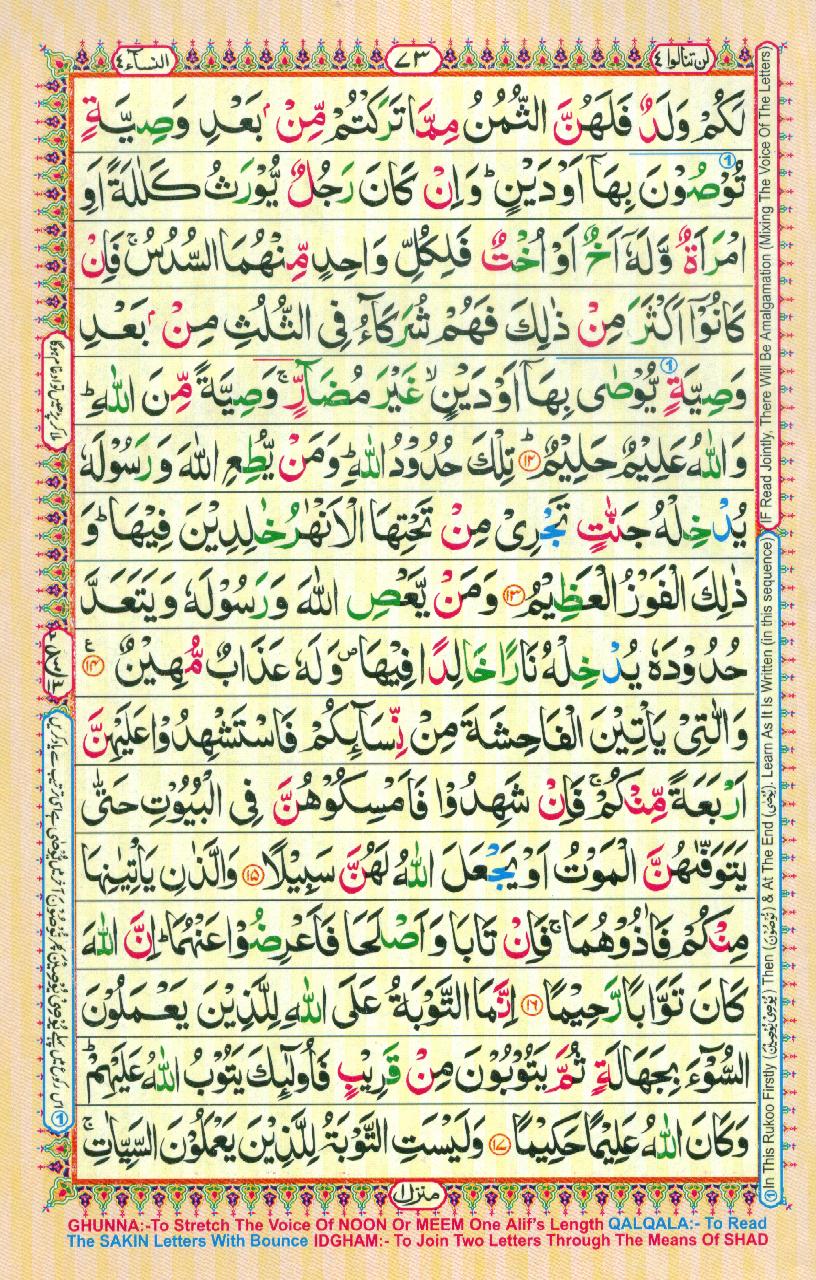 النسآء ٤
٧٣
لن تنالوا ٤
لَكُمْ وَلَدٌ فَلَهُنَّ الثُّمُنُ مِمَّا تَرَكْتُمْ مِّنْۢ بَعْدِ وَصِيَّةٍ
تُوْصُوْنَ بِهَاۤ اَوْ دَيْنٍ ؕ وَ اِنْ كَانَ رَجُلٌ يُّوْرَثُ كَلٰلَةً اَوِ
امْرَاَةٌ وَّلَهٗۤ اَخٌ اَوْ اُخْتٌ فَلِكُلِّ وَاحِدٍ مِّنْهُمَا السُّدُسُ ۚ فَاِنْ
كَانُوْۤا اَكْثَرَ مِنْ ذٰلِكَ فَهُمْ شُرَكَآءُ فِى الثُّلُثِ مِنْۢ بَعْدِ
وَصِيَّةٍ يُّوْصٰى بِهَاۤ اَوْ دَيْنٍ ۙ غَيْرَ مُضَآرٍّ ۚ وَصِيَّةً مِّنَ اللّٰهِ ؕ
وَ اللّٰهُ عَلِيْمٌ حَلِيْمٌ ؕ ۱۲ تِلْكَ حُدُوْدُ اللّٰهِ ؕ وَمَنْ يُّطِعِ اللّٰهَ وَ رَسُوْلَهٗ
يُدْخِلْهُ جَنّٰتٍ تَجْرِىْ مِنْ تَحْتِهَا الْاَنْهٰرُ خٰلِدِيْنَ فِيْهَا ؕ وَ
ذٰلِكَ الْفَوْزُ الْعَظِيْمُ ۱۳ وَمَنْ يَّعْصِ اللّٰهَ وَرَسُوْلَهٗ وَيَتَعَدَّ
حُدُوْدَهٗ يُدْخِلْهُ نَارًا خَالِدًا فِيْهَا ۪ وَلَهٗ عَذَابٌ مُّهِيْنٌ ۱۴ ع
وَالّٰتِىْ يَاْتِيْنَ الْفَاحِشَةَ مِنْ نِّسَآئِكُمْ فَاسْتَشْهِدُوْا عَلَيْهِنَّ
اَرْبَعَةً مِّنْكُمْ ۚ فَاِنْ شَهِدُوْا فَاَمْسِكُوْهُنَّ فِى الْبُيُوْتِ حَتّٰى
يَتَوَفّٰهُنَّ الْمَوْتُ اَوْ يَجْعَلَ اللّٰهُ لَهُنَّ سَبِيْلًا ۱۵ وَالَّذٰنِ يَاْتِيٰنِهَا
مِنْكُمْ فَاٰذُوْهُمَا ۚ فَاِنْ تَابَا وَ اَصْلَحَا فَاَعْرِضُوْا عَنْهُمَا ؕ اِنَّ اللّٰهَ
كَانَ تَوَّابًا رَّحِيْمًا ۱۶ اِنَّمَا التَّوْبَةُ عَلَى اللّٰهِ لِلَّذِيْنَ يَعْمَلُوْنَ
السُّوْٓءَ بِجَهَالَةٍ ثُمَّ يَتُوْبُوْنَ مِنْ قَرِيْبٍ فَاُولٰٓئِكَ يَتُوْبُ اللّٰهُ عَلَيْهِمْ ؕ
وَكَانَ اللّٰهُ عَلِيْمًا حَكِيْمًا ۱۷ وَلَيْسَتِ التَّوْبَةُ لِلَّذِيْنَ يَعْمَلُوْنَ السَّيِّاٰتِ ۚ
منزل ۱
IF Read Jointly, There Will Be Amalgamation (Mixing The Voice Of The Letters)
① In This Rukoo Firstly (يُوْصِىْ يُوْصِيْنَ) Then (تُوْصُوْنَ) & At The End (يُوْصٰى). Learn As It Is Written (in this sequence)
GHUNNA:-To Stretch The Voice Of NOON Or MEEM One Alif's Length QALQALA:- To Read
The SAKIN Letters With Bounce IDGHAM:- To Join Two Letters Through The Means Of SHAD